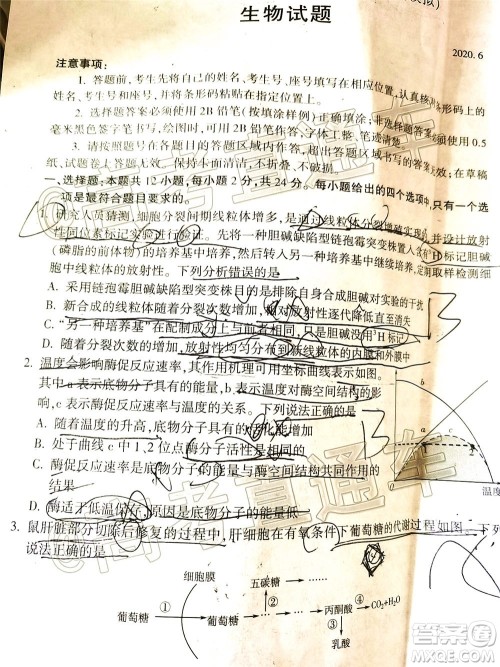 模拟)
生物试题
2020.6
注意事项:
1. 答题前,考生先将自己的姓名、考生号、座号填写在相应位置,认真核对条形码上的
姓名、考生号和座号等,并将条形码粘贴在指定位置上。
2. 选择题答案必须使用 2B 铅笔(按填涂样例)正确填涂;非选择题答案必须使用 0.5
毫米黑色签字笔书写,绘图时,可用 2B 铅笔作答,字体工整、笔迹清楚。
3. 请按照题号在各题目的答题区域内作答,超出答题区域书写的答案无效;在草稿
纸、试题卷上答题无效。保持卡面清洁,不折叠、不破损。
一、选择题:本题共 12 小题,每小题 2 分,共 24 分。每小题给出的四个选项中,只有一个
选项是最符合题目要求的。
1. 研究人员猜测,细胞分裂间期线粒体增多,是通过线粒体分裂实现的,并设计放射
性同位素标记实验进行验证。先将一种胆碱缺陷型链孢霉突变株置入含³H标记胆碱
(磷脂的前体物)的培养基中培养,然后转入另一种培养基中继续培养,定期取样,检测
细胞中线粒体的放射性。下列分析错误的是
A. 采用链孢霉胆碱缺陷型突变株目的是排除自身合成胆碱对实验的干扰
B. 新合成的线粒体随着分裂次数增加,相对放射性逐代降低直至消失
C. “另一种培养基”在配制成分上与前者相同,只是胆碱没用³H标记
D. 随着分裂次数增加,放射性均匀分布到新线粒体的内膜和外膜中
2. 温度会影响酶促反应速率,其作用机理可用坐标曲线表示如图。
其中:a 表示底物分子具有的能量,b 表示温度对酶空间结构的影
响,c 表示酶促反应速率与温度的关系。下列说法正确的是
A. 随着温度的升高,底物分子的活化能增加
B. 处于曲线 c 中 1、2 位点酶分子活性是相同的
C. 酶促反应速率是底物分子的能量与酶空间结构共同作用的
结果
D. 酶适于低温保存,原因是底物分子的能量低
a
b
c
1
2
0
温度
3. 鼠肝脏部分切除后修复的过程中,肝细胞在有氧条件下葡萄糖的代谢过程如图。下列
说法正确的是
细胞膜
五碳糖
葡萄糖 ① 葡萄糖 ③ 丙酮酸 ④ CO₂+H₂O
②
乳酸